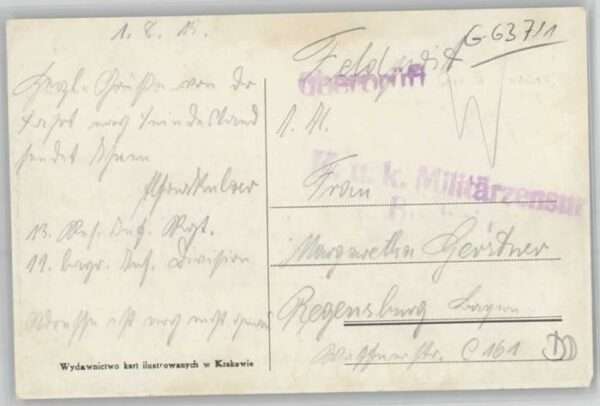 1. 8. 15.
Herzl. Grüße von der
Fahrt nach Feindesland
sendet Ihnen
13. Res. Inf. Regt.
11. bayr. Inf. Division
Adresse ist noch nicht genau
Wydawnictwo kart ilustrowanych w Krakowie
G 637/1
Feldpost
Überprüft
K. u. k. Militärzensur
Frau
Margaretha Gerstner
Regensburg Bayern
C 161